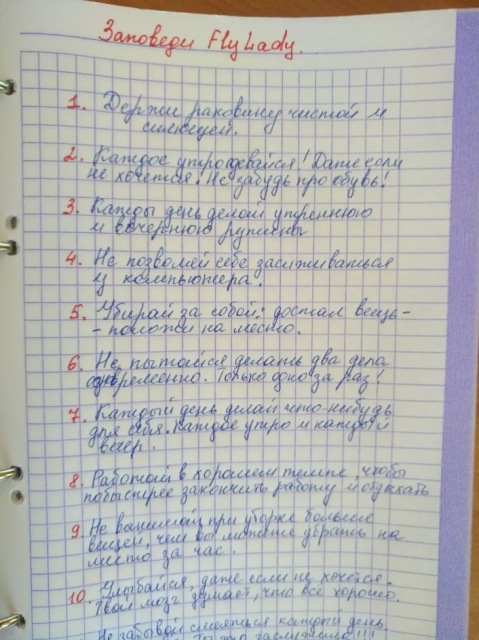 Заповеди FlyLady.
1. Держи раковину чистой и
сияющей.
2. Каждое утро одевайся! Даже если
не хочется! Не забудь про обувь!
3. Кажды день делай утреннюю
и вечернюю рутины
4. Не позволяй себе засиживаться
у компьютера.
5. Убирай за собой: достал вещь -
- положи на место.
6. Не пытайся делать два дела
одновременно. Только одно за раз!
7. Каждый день делай что-нибудь
для себя. Каждое утро и каждый
вечер.
8. Работай в хорошем темпе, чтобы
побыстрее закончить работу и отдыхать
9. Не вынимай при уборке больше
вещей, чем вы можете убрать на
место за час.
10. Улыбайся, даже если не хочется.
Твой мозг думает, что все хорошо.
Не забывай смеяться каждый день.
заслужила!!!